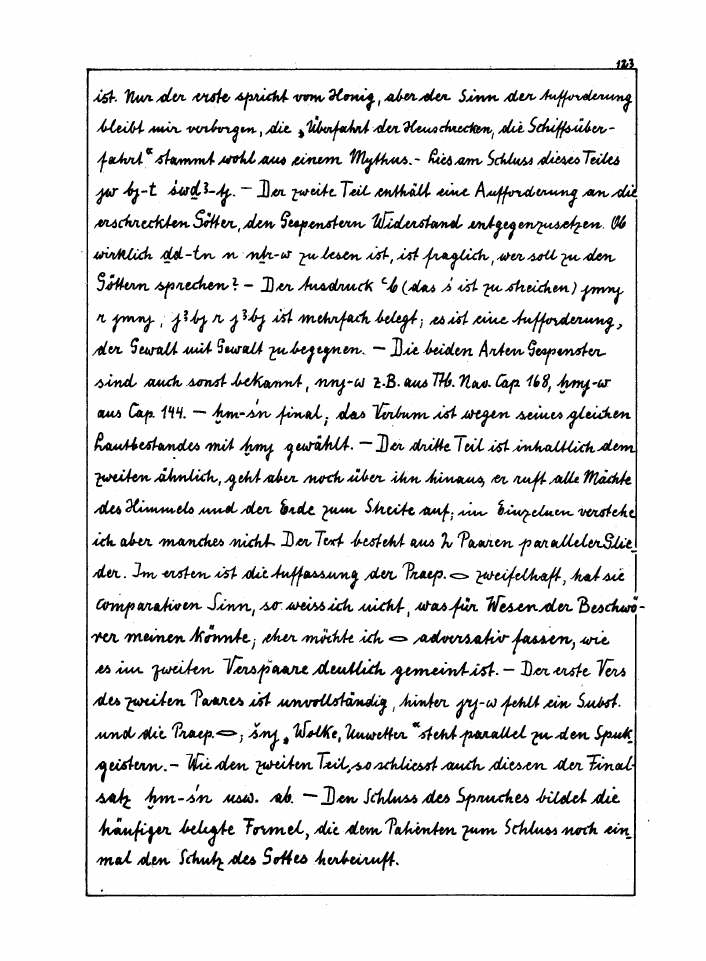 123
ist. Nur der erste spricht vom Honig, aber der Sinn der Aufforderung
bleibt mir verborgen, die „Überfahrt der Heuschrecken, die Schiffsüber-
fahrt“ stammt wohl aus einem Mythus. - Lies am Schluss dieses Teiles
jw bj-t św ꜣ-tj. — Der zweite Teil enthält eine Aufforderung an die
erschreckten Götter, den Gespenstern Widerstand entgegenzusetzen. Ob
wirklich ḏd-tn n nṯr-w zu lesen ist, ist fraglich, wer soll zu den
Göttern sprechen? - Der Ausdruck ꜥb (das ś ist zu streichen) jmnj
r jmnj, jꜣbj r jꜣbj ist mehrfach belegt; es ist eine Aufforderung,
der Gewalt mit Gewalt zu begegnen. — Die beiden Arten Gespenster
sind auch sonst bekannt, nnj-w z.B. aus Ttb. Nav. Cap 168, ẖmj-w
aus Cap. 144. — ẖm-śn final; das Verbum ist wegen seines gleichen
Lautbestandes mit ẖmj gewählt. — Der dritte Teil ist inhaltlich dem
zweiten ähnlich, geht aber noch über ihn hinaus, er ruft alle Mächte
des Himmels und der Erde zum Streite auf; im Einzelnen verstehe
ich aber manches nicht. Der Text besteht aus 2 Paaren paralleler Glie-
der. Im ersten ist die Auffassung der Praep. 𓂋 zweifelhaft, hat sie
comparativen Sinn, so weiss ich nicht, was für Wesen der Beschwö-
rer meinen könnte; eher möchte ich 𓂋 adversativ fassen, wie
es im zweiten Verspaare deutlich gemeint ist. — Der erste Vers
des zweiten Paares ist unvollständig, hinter jrj-w fehlt ein Subst.
und die Praep. 𓂋; šnj „Wolke, Unwetter“ steht parallel zu den Spuk-
geistern. - Wie den zweiten Teil, so schliesst auch diesen der Final-
satz ẖm-śn usw. ab. — Den Schluss des Spruches bildet die
häufiger belegte Formel, die dem Patienten zum Schluss noch ein-
mal den Schutz des Gottes herbeiruft.